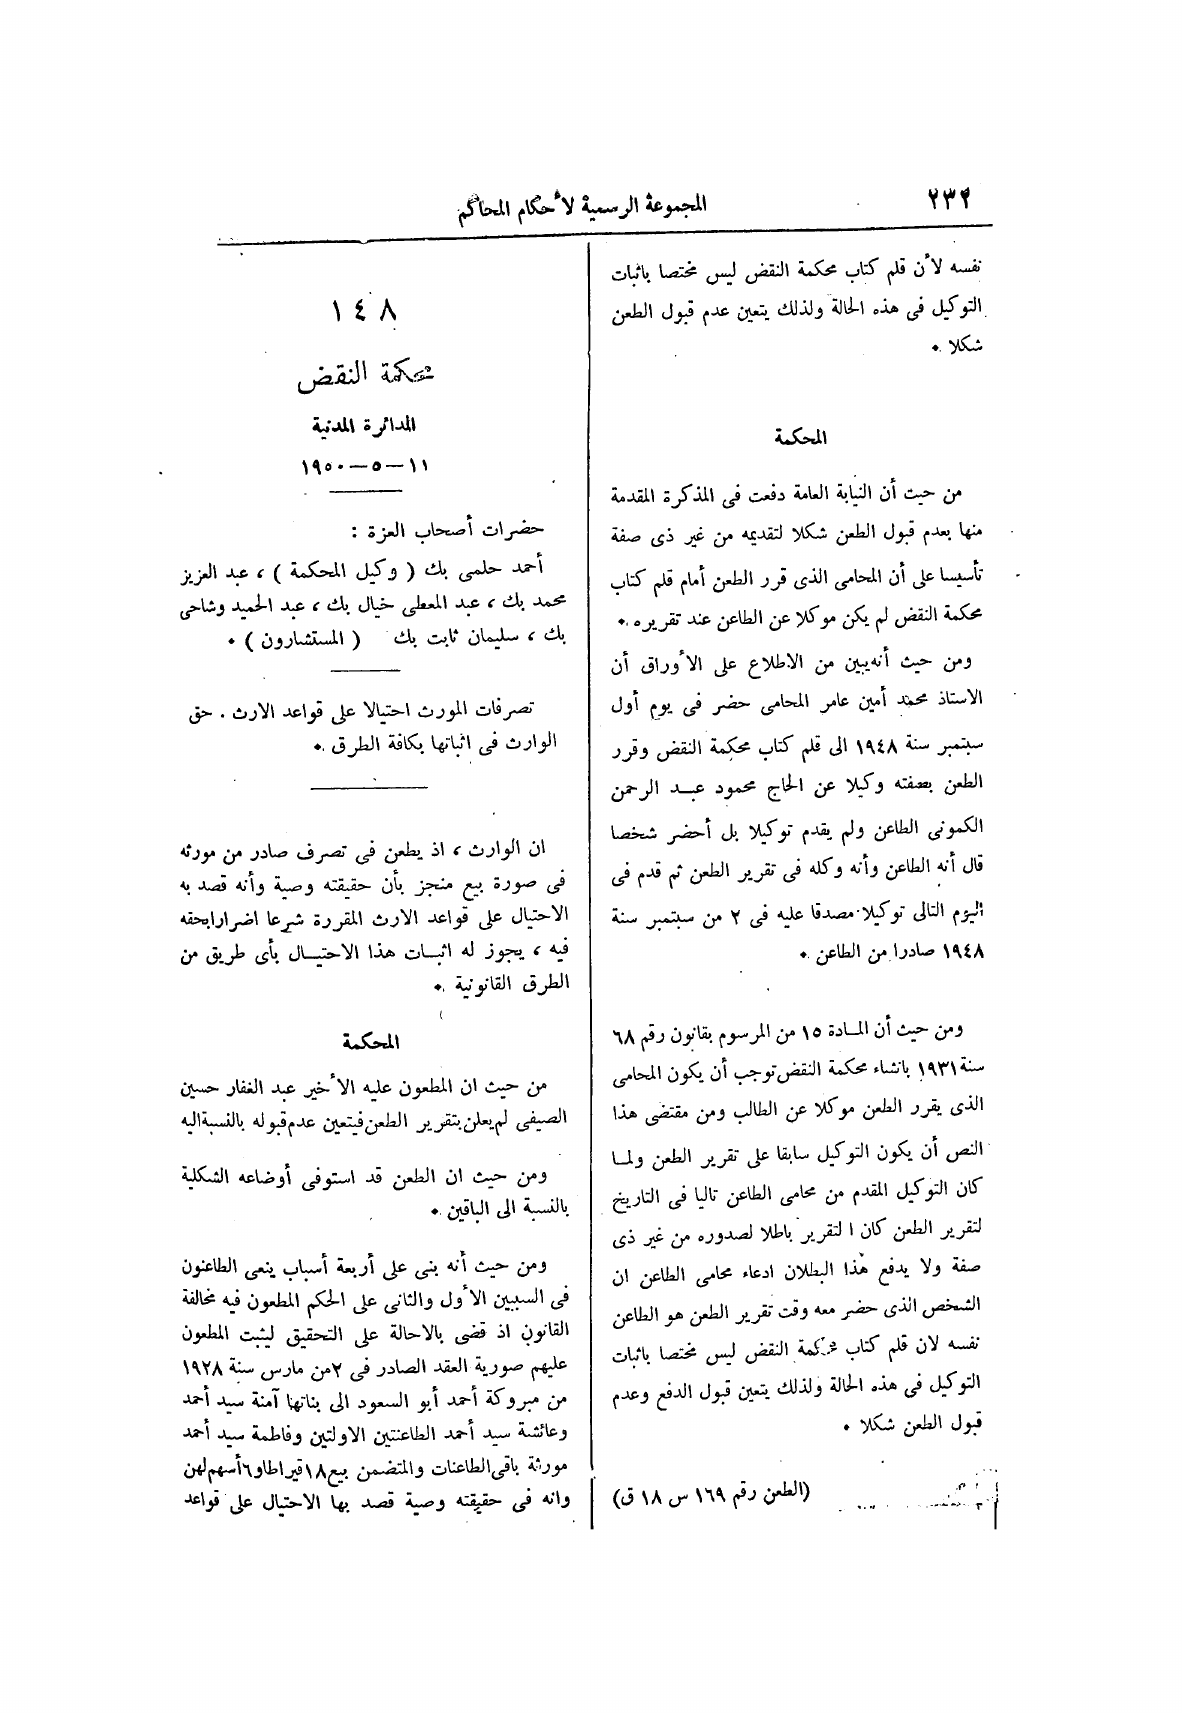 ٢٣٢
المجموعة الرسمية لأحكام المحاكم
نفسه لأن قلم كتاب محكمة النقض ليس مختصا باثبات
التوكيل فى هذه الحالة ولذلك يتعين عدم قبول الطعن
شكلا .
المحكمة
من حيث أن النيابة العامة دفعت فى المذكرة المقدمة
منها بعدم قبول الطعن شكلا لتقديمه من غير ذى صفة
تأسيسا على أن المحامى الذى قرر الطعن أمام قلم كتاب
محكمة النقض لم يكن موكلا عن الطاعن عند تقريره .
ومن حيث أنه يبين من الاطلاع على الأوراق أن
الاستاذ محمد أمين عامر المحامى حضر فى يوم أول
سبتمبر سنة ١٩٤٨ الى قلم كتاب محكمة النقض وقرر
الطعن بصفته وكيلا عن الحاج محمود عبد الرحمن
الكمونى الطاعن ولم يقدم توكيلا بل أحضر شخصا
قال أنه الطاعن وأنه وكله فى تقرير الطعن ثم قدم فى
اليوم التالى توكيلا مصدقا عليه فى ٢ من سبتمبر سنة
١٩٤٨ صادرا من الطاعن .
ومن حيث أن المادة ١٥ من المرسوم بقانون رقم ٦٨
سنة ١٩٣١ بانشاء محكمة النقض توجب أن يكون المحامى
الذى يقرر الطعن موكلا عن الطالب ومن مقتضى هذا
النص أن يكون التوكيل سابقا على تقرير الطعن ولما
كان التوكيل المقدم من محامى الطاعن تاليا فى التاريخ
لتقرير الطعن كان التقرير باطلا لصدوره من غير ذى
صفة ولا يدفع هذا البطلان ادعاء محامى الطاعن ان
الشخص الذى حضر معه وقت تقرير الطعن هو الطاعن
نفسه لان قلم كتاب محكمة النقض ليس مختصا باثبات
التوكيل فى هذه الحالة ولذلك يتعين قبول الدفع وعدم
قبول الطعن شكلا .
(الطعن رقم ١٦٩ س ١٨ ق)
١٤٨
محكمة النقض
الدائرة المدنية
١١-٥-١٩٥٠
حضرات أصحاب العزة :
أحمد حلمى بك ( وكيل المحكمة ) ، عبد العزيز
محمد بك ، عبد المعطى خيال بك ، عبد الحميد وشاحى
بك ، سليمان ثابت بك ( المستشارون ) .
تصرفات المورث احتيالا على قواعد الارث . حق
الوارث فى اثباتها بكافة الطرق .
ان الوارث ، اذ يطعن فى تصرف صادر من مورثه
فى صورة بيع منجز بأن حقيقته وصية وأنه قصد به
الاحتيال على قواعد الارث المقررة شرعا اضرارا بحقه
فيه ، يجوز له اثبات هذا الاحتيال بأى طريق من
الطرق القانونية .
المحكمة
من حيث ان المطعون عليه الأخير عبد الغفار حسين
الصيفى لم يعلن بتقرير الطعن فيتعين عدم قبوله بالنسبة اليه
ومن حيث ان الطعن قد استوفى أوضاعه الشكلية
بالنسبة الى الباقين .
ومن حيث أنه بنى على أربعة أسباب ينعى الطاعنون
فى السببين الأول والثانى على الحكم المطعون فيه مخالفة
القانون اذ قضى بالاحالة على التحقيق ليثبت المطعون
عليهم صورية العقد الصادر فى ٢ من مارس سنة ١٩٢٨
من مبروكة أحمد أبو السعود الى بناتها آمنة سيد أحمد
وعائشة سيد أحمد الطاعنتين الاولتين وفاطمة سيد أحمد
مورثة باقى الطاعنات والمتضمن بيع ١٨ قيراطا و٦ أسهم لهن
وانه فى حقيقته وصية قصد بها الاحتيال على قواعد